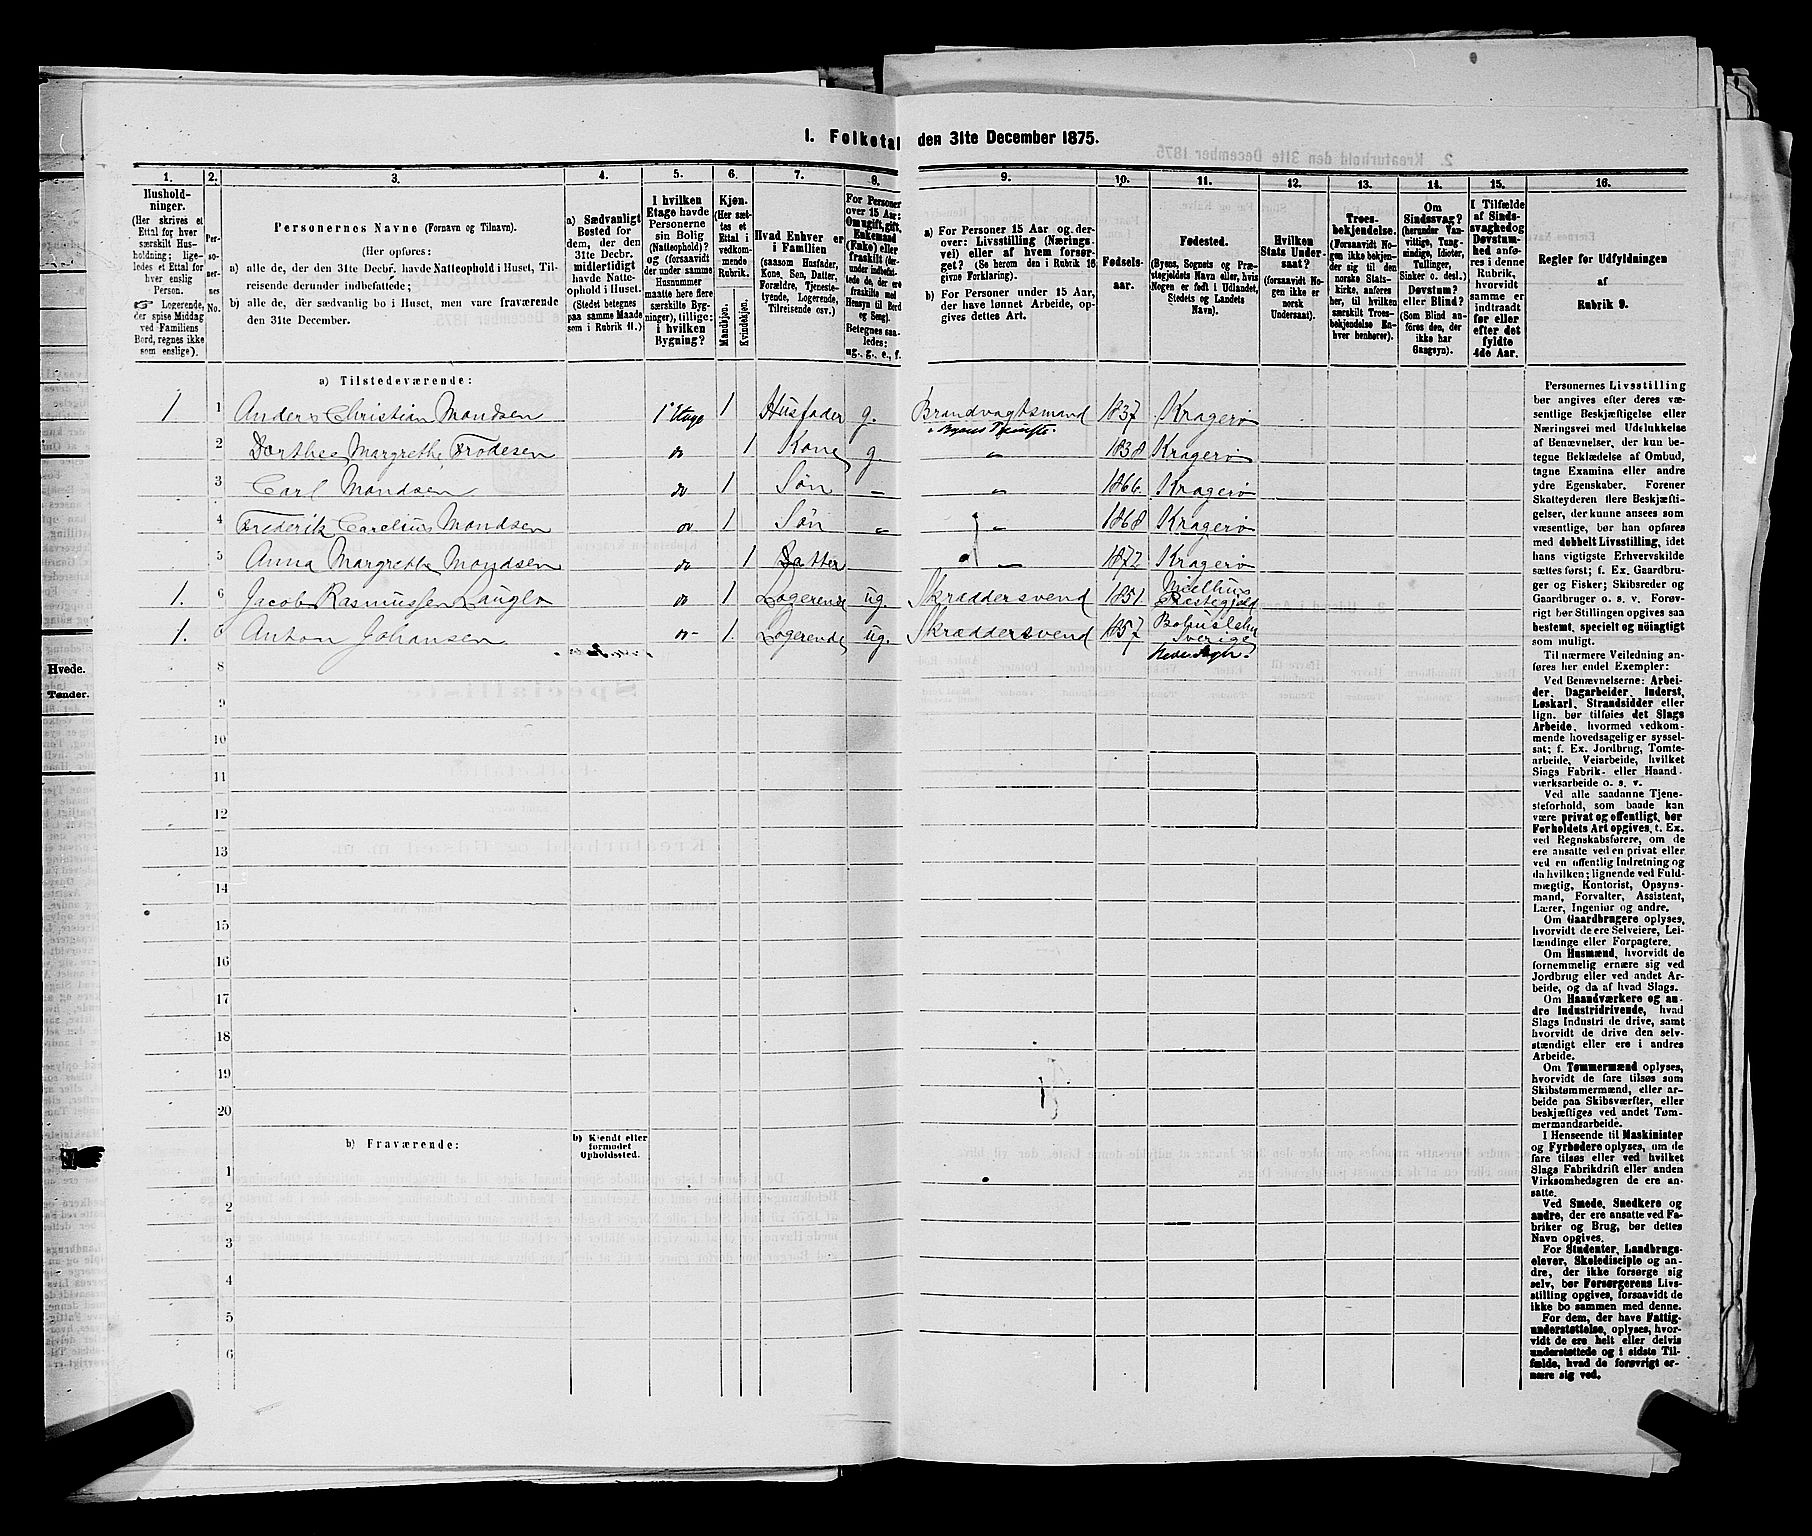 I. Folketal den 31te December 1875.
1. 2. 3. 4. 5. 6. 7. 8. 9. 10. 11. 12. 13. 14. 15. 16.
Husholdninger.
(Her skrives et Ettal for hver særskilt Husholdning; ligeledes et Ettal for hver enslig Person.
☞ Logerende, der spise Middag ved Familiens Bord, regnes ikke som enslige).
Personernes No.
Personernes Navne (Fornavn og Tilnavn).
(Her opføres:
a) alle de, der den 31te Decbr. havde Natteophold i Huset, Tilreisende derunder indbefattede;
b) alle de, der sædvanlig bo i Huset, men vare fraværende den 31te December.
a) Sædvanligt Bosted for dem, der den 31te Decbr. midlertidigt havde Natteophold i Huset. (Stedet betegnes paa samme Maade som i Rubrik 11.)
I hvilken Etage havde Personerne sin Bolig (Natteophold)? og (forsaavidt der under samme Husnummer maatte høre flere særskilte Bygninger), tillige: i hvilken Bygning?
Kjøn. (Her sættes et Ettal i vedkommende Rubrik.
Mandkjøn. Kvindekjøn.
Hvad Enhver er i Familien (saasom Husfader, Kone, Søn, Datter, Forældre, Tjenestetyende, Logerende, Tilreisende osv.)
For Personer over 15 Aar: Om ugift, gift, Enkemand (Enke) eller fraskilt (herunder indbefattede de, der ere fraskilte med Hensyn til Bord og Seng). Betegnes saaledes: ug., g., e., f.
a) For Personer 15 Aar og derover: Livsstilling (Næringsvei) eller af hvem forsørget? (Se herom den i Rubrik 16 givne Forklaring).
b) For Personer under 15 Aar, der have lønnet Arbeide, opgives dettes Art.
Fødselsaar.
Fødested.
(Byens, Sognets og Præstegjeldets Navn eller, hvis Nogen er født i Udlandet, Stedets og Landets Navn).
Hvilken Stats Undersaat? (forsaavidt Nogen ikke er norsk Undersaat).
Troesbekjendelse. (Forsaavidt Nogen ikke bekjender sig til den norske Statskirke, anføres her, til hvilken særskilt Troesbekjendelse Enhver benhører).
Om Sindssvag? (herunder Vanvittige, Tungsindige, Idioter, Tullinger, Sinker o. desl.) Døvstum? eller Blind? (Som Blind anføres den, der ikke har Gangsyn).
I Tilfælde af Sindssvaghed og Døvstumhed anføres i denne Rubrik, hvorvidt samme er indtraadt før eller efter det fyldte 4de Aar.
Regler før Udfyldningen af Rubrik 9.
a) Tilstedeværende:
1 1 Anders Christian Mandsen 1ste Etage 1 Husfader g. Brandvagtsmand 1837 Kragerø
2 Dorthea Margrethe Frodesen do 1 Kone g. " 1838 Kragerø
3 Carl Mandsen do 1 Søn – " 1866. Kragerø
4 Frederik Carelius Mandsen do 1 Søn " " 1868 Kragerø
5 Anna Margrethe Mandsen do 1 Datter 1872 Kragerø
1. 6 Jacob Rasmussen Langlo do 1 Logerende ug. Skræddersvend 1851 Præstegjeld
1. Anton Johansen do- 1. Logerende ug. Skræddersvend 1857 Sverige
8
9
10
11
12
13
14
15
16
17
18
19
20
b) Fraværende:
b) Kjendt eller formodet Opholdssted.
1
2
3
4
5
6
Personernes Livsstilling bør angives efter deres væsentlige Beskjæftigelse eller Næringsvei med Udelukkelse af Benævnelser, der kun betegne Beklædelse af Ombud, tagne Examina eller andre ydre Egenskaber. Forener Skatteyderen flere Beskjæftigelser, der kunne ansees som væsentlige, bør han opføres med dobbelt Livsstilling, idet hans vigtigste Erhvervskilde sættes først; f. Ex. Gaardbruger og Fisker; Skibsreder og Gaardbruger o. s. v. Forøvrigt bør Stillingen opgives saa bestemt, specielt og nøiagtigt som muligt.
Til nærmere Veiledning anføres her endel Exempler:
Ved Benævnelserne: Arbeider, Dagarbeider, Inderst, Løskarl, Strandsidder eller lign. bør tilføies det Slags Arbeide, hvormed vedkommende hovedsagelig er sysselsat; f. Ex. Jordbrug, Tomtearbeide, Veiarbeide, hvilket Slags Fabrik- eller Haandværksarbeide o. s. v.
Ved alle saadanne Tjenesteforhold, som baade kan være privat og offentligt, bør Forholdets Art opgives, t. Ex. ved Regnskabsførere, om de ere ansatte ved en privat eller ved en offentlig Indretning og da hvilken; lignende ved Fuldmægtig, Kontorist, Opsynsmand, Forvalter, Assistent, Lærer, Ingeniør og andre.
Om Gaardbrugere oplyses, hvorvidt de ere Selveiere, Leilændinge eller Forpagtere.
Om Husmænd, hvorvidt de fornemmelig ernære sig ved Jordbrug eller ved andet Arbeide, og da af hvad Slags.
Om Haandværkere og andre Industridrivende, hvad Slags Industri de drive, samt hvorvidt de drive den selvstændigt eller ere i andres Arbeide.
Om Tømmermænd oplyses, hvorvidt de fare tilsøs som Skibstømmermænd, eller arbeide paa Skibsværfter, eller beskjæftiges ved andet Tømmermandsarbeide.
I Henseende til Maskinister og Fyrbødere oplyses, om de fare tilsøs eller ved hvilket Slags Fabrikdrift eller anden Virksomhedsgren de ere ansatte.
Ved Smede, Snedkere og andre, der ere ansatte ved Fabriker og Brug, bør dettes Navn opgives.
For Studenter, Landbrugselever, Skoledisciple og andre, der ikke forsørge sig selv, bør Forsørgerens Livsstilling opgives, forsaavidt de ikke bo sammen med denne.
For dem, der have Fattigunderstøttelse, oplyses, hvorvidt de ere helt eller delvis understøttede og i sidste Tilfælde, hvad de forøvrigt ernære sig ved.
Hvede.
Tønder.